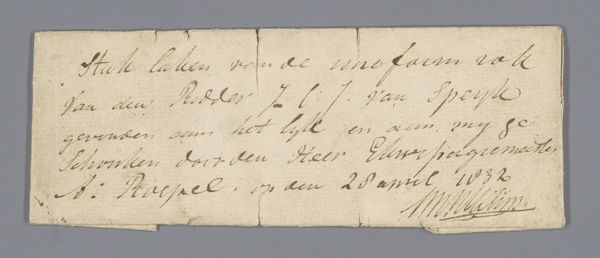 Stuk laken van de uniform rok
Van den Ridder J. C. J. Van Speyk
gevonden aan het lyk en aan my ge
schonken door den Heer Eduispagiemeester
A: Roepel. op den 28 april 1832